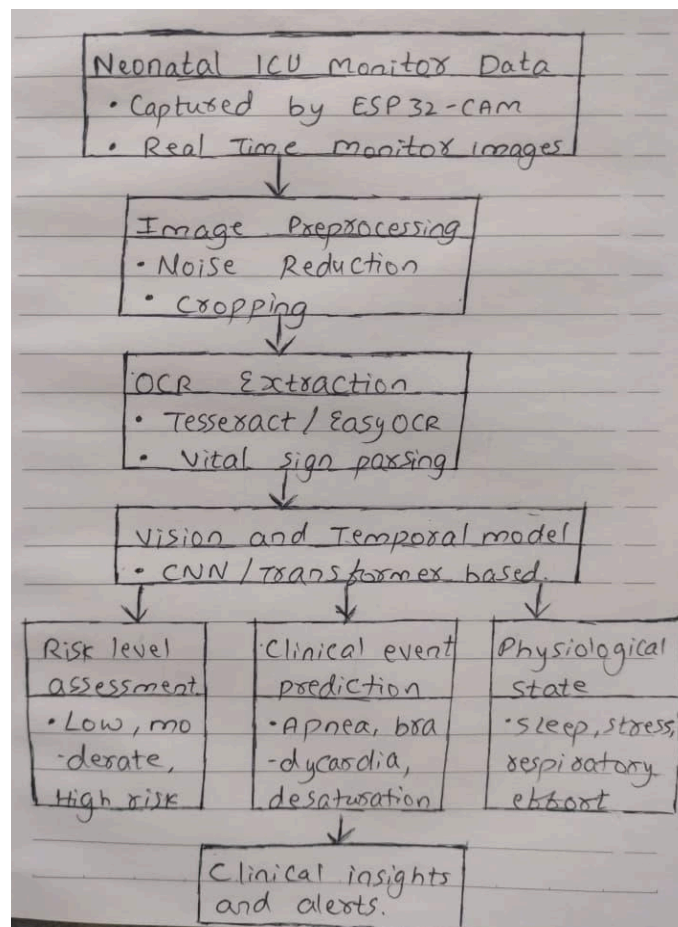 Neonatal ICU Monitor Data
• Captured by ESP32-CAM
• Real Time monitor images
Image Preprocessing
• Noise Reduction
• Cropping
OCR Extraction
• Tesseract / EasyOCR
• Vital sign parsing
Vision and Temporal model
• CNN / Transformer based.
Risk level
assessment
• Low, mo
-derate,
High risk
Clinical event
prediction
• Apnea, bra
-dycardia,
desaturation
Physiological
state
• sleep, stress,
respiratory
effort
Clinical insights
and alerts.